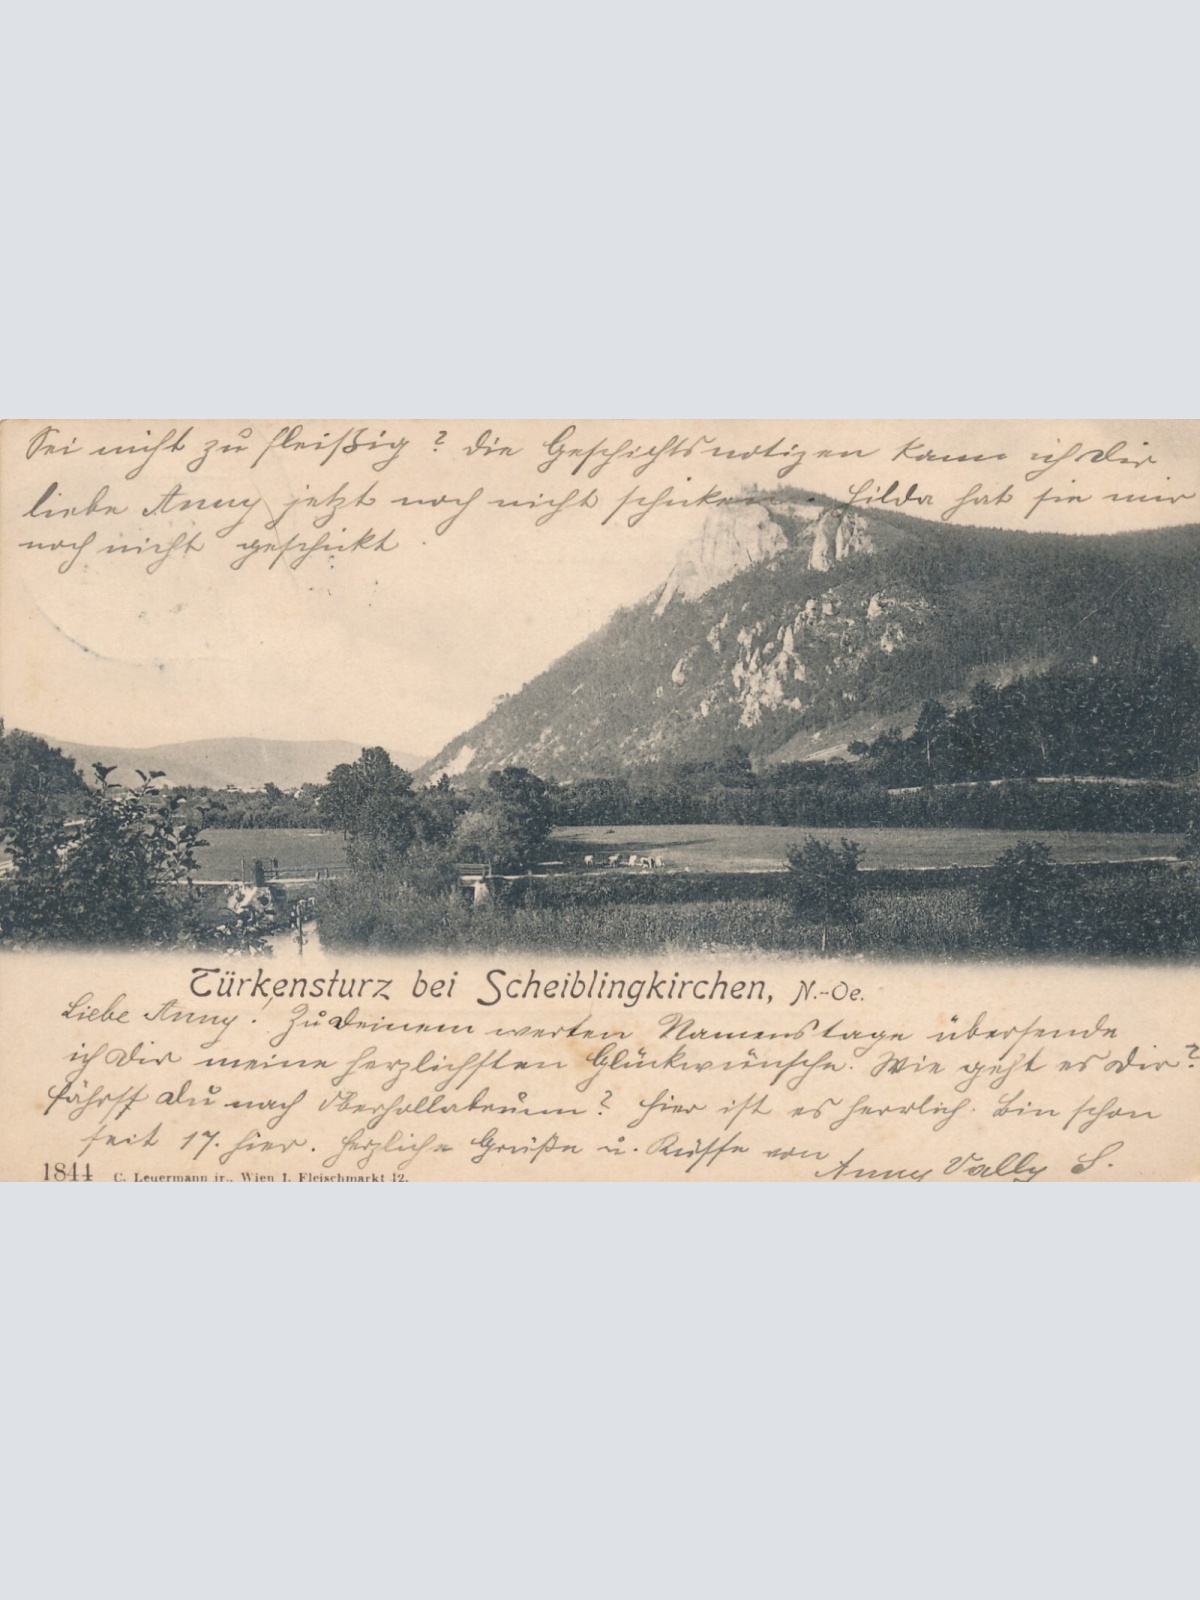 Sei nicht zu fleißig? die Geschichtsnotizen kann ich Dir
liebe Anny jetzt noch nicht schicken. Hilda hat sie mir
noch nicht geschickt.
Türkensturz bei Scheiblingkirchen, N.-Oe.
Liebe Anny! Zu Deinem werten Namenstage übersende
ich Dir meine herzlichsten Glückwünsche. Wie geht es Dir?
Fährst Du nach Oberhollabrunn? Hier ist es herrlich. Bin schon
seit 17. hier. Herzliche Grüße u. Küsse von
Anny Vally S.
1844 C. Leuermann jr., Wien I. Fleischmarkt 12.